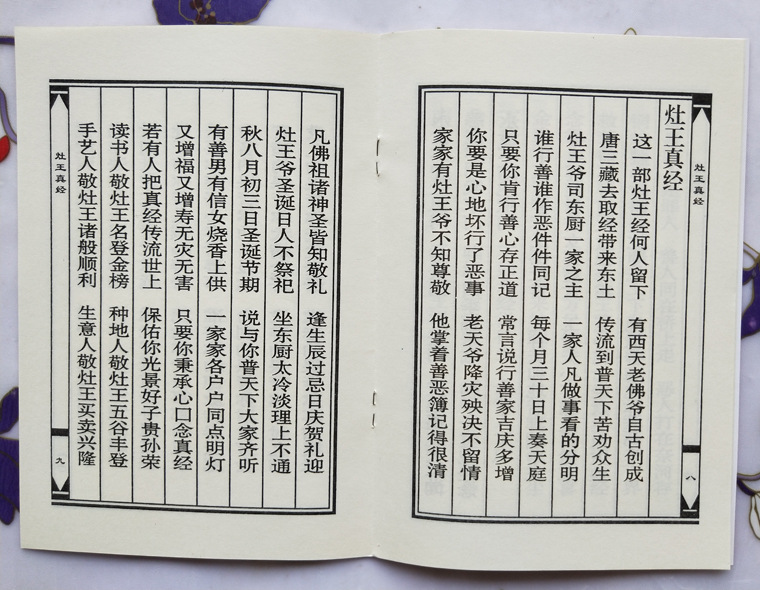 灶王真经
灶王真经
这一部灶王经何人留下 有西天老佛爷自古创成
唐三藏去取经带来东土 传流到普天下苦劝众生
灶王爷司东厨一家之主 一家人凡做事看的分明
谁行善谁作恶件件同记 每个月三十日上奏天庭
只要你肯行善心存正道 常言说行善家吉庆多增
你要是心地坏行了恶事 老天爷降灾殃决不留情
家家有灶王爷不知尊敬 他掌着善恶簿记得很清
八
凡佛祖诸神圣皆知敬礼 逢生辰过忌日庆贺礼迎
灶王爷圣诞日人不祭祀 坐东厨太冷淡理上不通
秋八月初三日圣诞节期 说与你普天下大家齐听
有善男有信女烧香上供 一家家各户户同点明灯
又增福又增寿无灾无害 只要你秉承心口念真经
若有人把真经传流世上 保佑你光景好子贵孙荣
读书人敬灶王名登金榜 种地人敬灶王五谷丰登
手艺人敬灶王诸般顺利 生意人敬灶王买卖兴隆
灶王真经
九